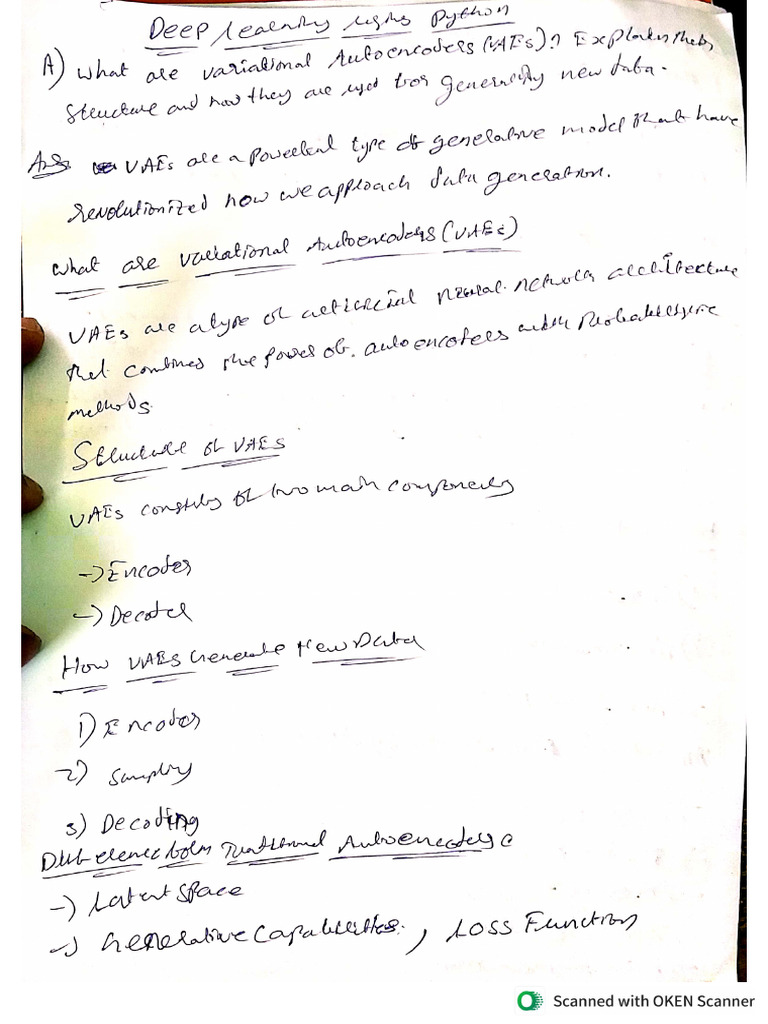 Deep Learning using Python
A) What are variational Autoencoders (VAEs)? Explain their
Structure and how they are used for generating new data.
Ans VAEs are a powerful type of generative model that have
revolutionized how we approach data generation.
What are variational Autoencoders (VAEs)
VAEs are a type of artificial neural network architecture
that combines the power of autoencoders with Probabilistic
methods
Structure of VAEs
VAEs consists of two main components
-> Encoder
-> Decoder
How VAEs Generate New Data
1) Encoder
2) Sampling
3) Decoding
Difference from Traditional Autoencoders
-> Latent Space
-> Generative Capabilities, Loss Function
Scanned with OKEN Scanner